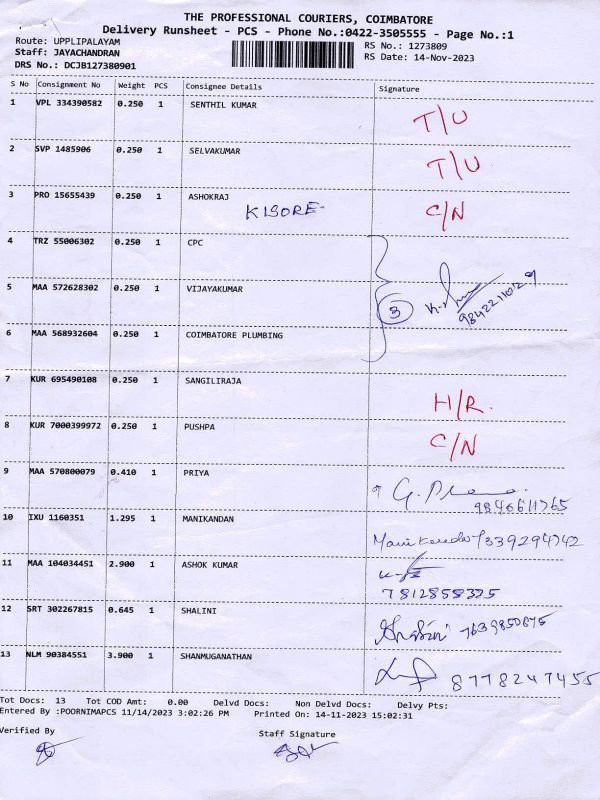 THE PROFESSIONAL COURIERS, COIMBATORE
Delivery Runsheet - PCS - Phone No.:0422-3505555 - Page No.:1
Route: UPPLIPALAYAM RS No.: 1273809
Staff: JAYACHANDRAN RS Date: 14-Nov-2023
DRS No.: DCJB127380901
S No Consignment No Weight PCS Consignee Details Signature
1 VPL 334390582 0.250 1 SENTHIL KUMAR T/U
2 SVP 1485906 0.250 1 SELVAKUMAR T/U
3 PRO 15655439 0.250 1 ASHOKRAJ C/N
KISORE
4 TRZ 55006302 0.250 1 CPC
5 MAA 572628302 0.250 1 VIJAYAKUMAR 3
6 MAA 568932604 0.250 1 COIMBATORE PLUMBING
7 KUR 695490108 0.250 1 SANGILIRAJA H/R.
8 KUR 7000399972 0.250 1 PUSHPA C/N
9 MAA 570800079 0.410 1 PRIYA
9846611765
10 IXU 1160351 1.295 1 MANIKANDAN 7339294742
11 MAA 104034451 2.900 1 ASHOK KUMAR
7812858325
12 SRT 302267815 0.645 1 SHALINI 7639850875
13 NLM 90384551 3.900 1 SHANMUGANATHAN 8778247455
Tot Docs: 13 Tot COD Amt: 0.00 Delvd Docs: Non Delvd Docs: Delvy Pts:
Entered By :POORNIMAPCS 11/14/2023 3:02:26 PM Printed On: 14-11-2023 15:02:31
Verified By Staff Signature